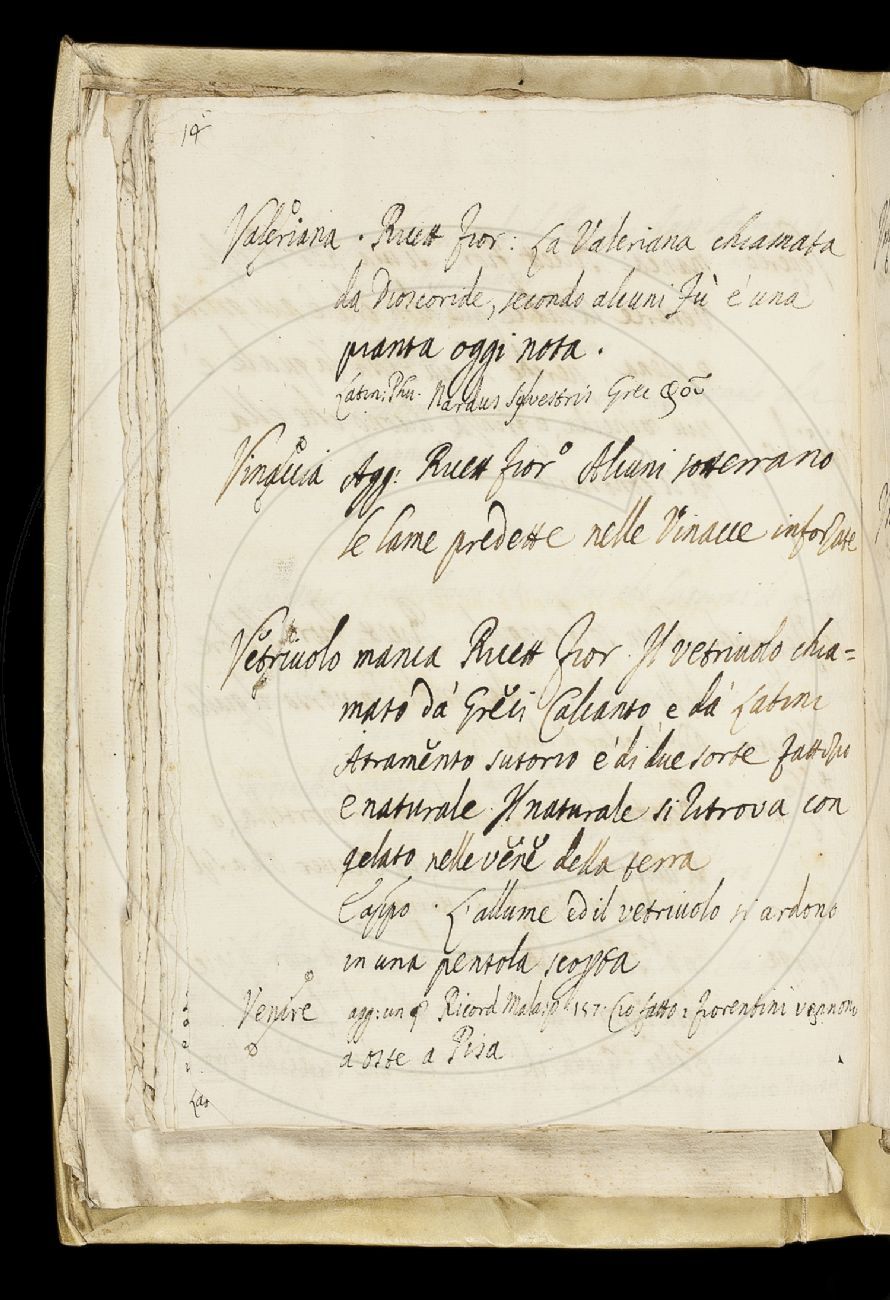 14
Valeriana. Ricett Fior: La Valeriana chiamata
da Dioscoride, secondo alcuni Fù è una
pianta oggi nota.
Latin: Phu. Nardus Sylvestris Grec φοῦ
Vinaccia Agg: Ricett Fior° Alcuni sotterrano
le lame predette nelle Vinacce inforzate
Vetriuolo manca Ricett Fior. Il vetriuolo chia=
mato da' Greci Calcanto, e da' Latini
Atramento sutorio è di due sorte fattizio
e naturale. Il naturale si ritrova con
gelato nelle vene della terra
L'allume ed il vetriuolo si ardono
in una pentola
Venire agg: un Ricord Malesp 157. Ciò fatto i Fiorentini vennono
a oste a Pisa